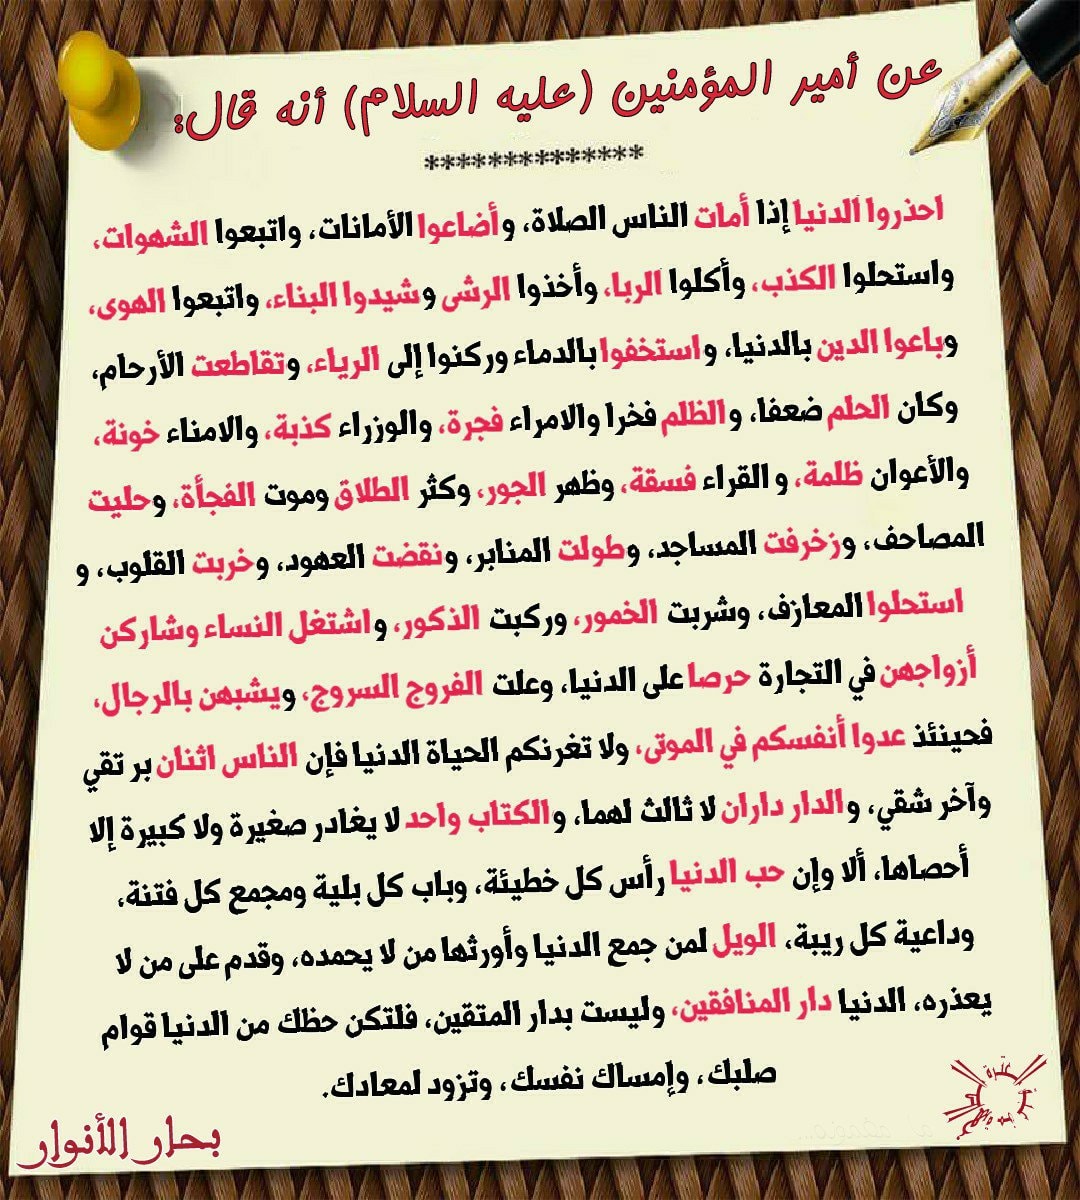 عن أمير المؤمنين (عليه السلام) أنه قال:
**************
احذروا الدنيا إذا أمات الناس الصلاة، وأضاعوا الأمانات، واتبعوا الشهوات،
واستحلوا الكذب، وأكلوا الربا، وأخذوا الرشى وشيدوا البناء، واتبعوا الهوى،
وباعوا الدين بالدنيا، واستخفوا بالدماء وركنوا إلى الرياء، وتقاطعت الأرحام،
وكان الحلم ضعفا، والظلم فخرا والامراء فجرة، والوزراء كذبة، والامناء خونة،
والأعوان ظلمة، و القراء فسقة، وظهر الجور، وكثر الطلاق وموت الفجأة، وحليت
المصاحف، وزخرفت المساجد، وطولت المنابر، ونقضت العهود، وخربت القلوب، و
استحلوا المعازف، وشربت الخمور، وركبت الذكور، واشتغل النساء وشاركن
أزواجهن في التجارة حرصا على الدنيا، وعلت الفروج السروج، ويشبهن بالرجال،
فحينئذ عدوا أنفسكم في الموتى، ولا تغرنكم الحياة الدنيا فإن الناس اثنان بر تقي
وآخر شقي، والدار داران لا ثالث لهما، والكتاب واحد لا يغادر صغيرة ولا كبيرة إلا
أحصاها، ألا وإن حب الدنيا رأس كل خطيئة، وباب كل بلية ومجمع كل فتنة،
وداعية كل ريبة، الويل لمن جمع الدنيا وأورثها من لا يحمده، وقدم على من لا
يعذره، الدنيا دار المنافقين، وليست بدار المتقين، فلتكن حظك من الدنيا قوام
صلبك، وإمساك نفسك، وتزود لمعادك.
بحار الأنوار